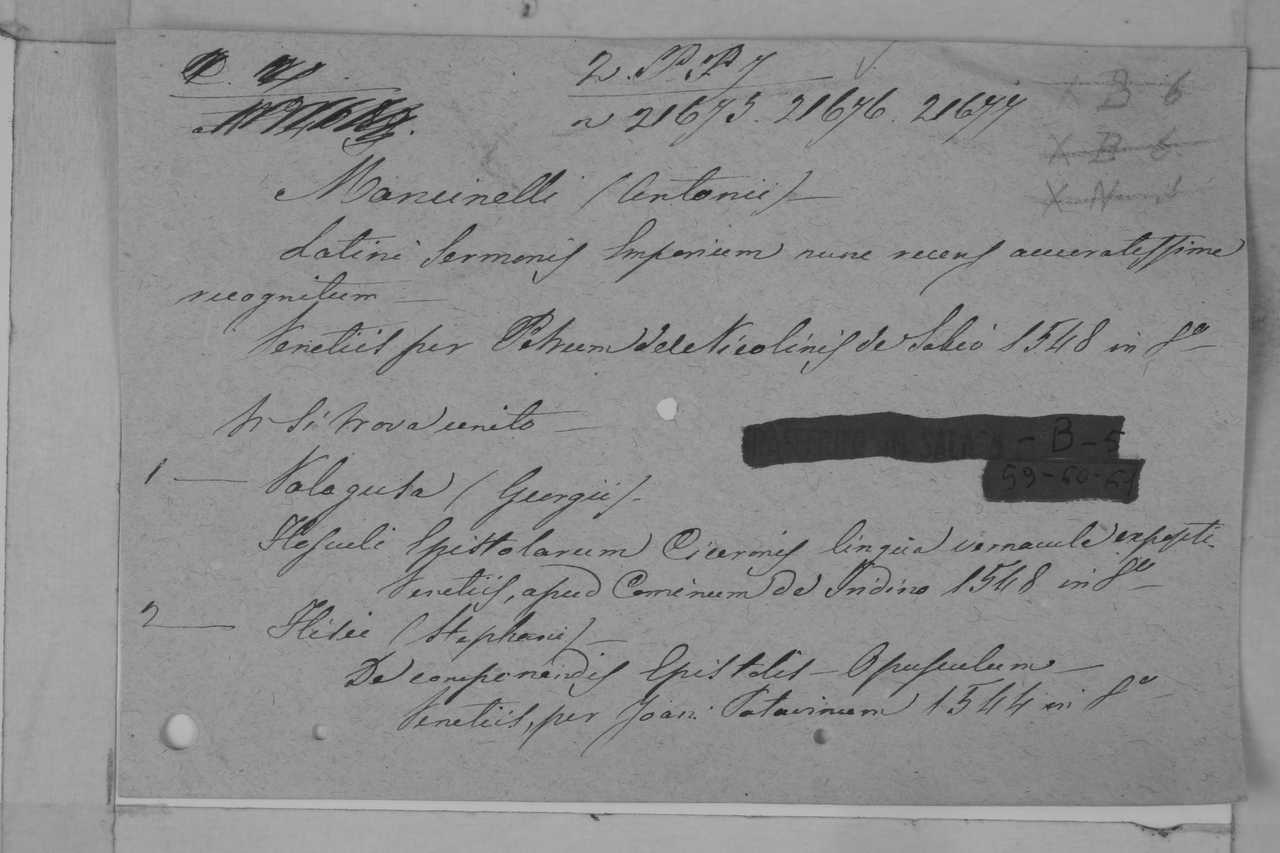 2. P. P. 7
n 21675. 21676. 21677
B 6
X B 6
Mancinelli (Antonii)—
Latini Sermonis Emporium nunc recens accuratissime
recognitum—
Venetiis per Petrum de Nicolinis de Sabio 1548 in 8o—
Si trova unito—
1 — Valaguta (Georgii)—
Flosculi Epistolarum Ciceronis lingua vernacula expositi—
Venetiis, apud Cominum de Tridino 1548 in 8o—
2 — Flisci (Stephani)—
De componendis Epistolis— Opusculum—
Venetiis, per Joan: Patavinum 1544 in 8o
SALA - B - 5
59-60-61